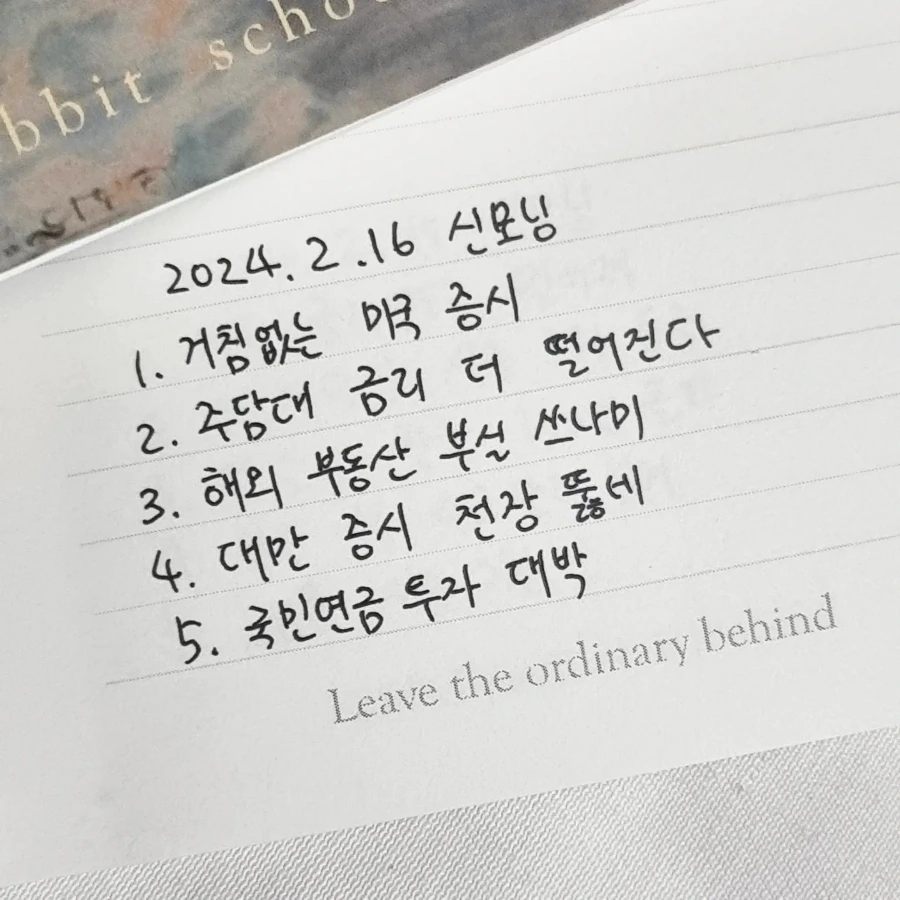 bbit scho
2024.2.16 신모닝
1. 거침없는 미국 증시
2. 주담대 금리 더 떨어진다
3. 해외 부동산 부실 쓰나미
4. 대만 증시 천장 뚫네
5. 국민연금 투자 대박
Leave the ordinary behind